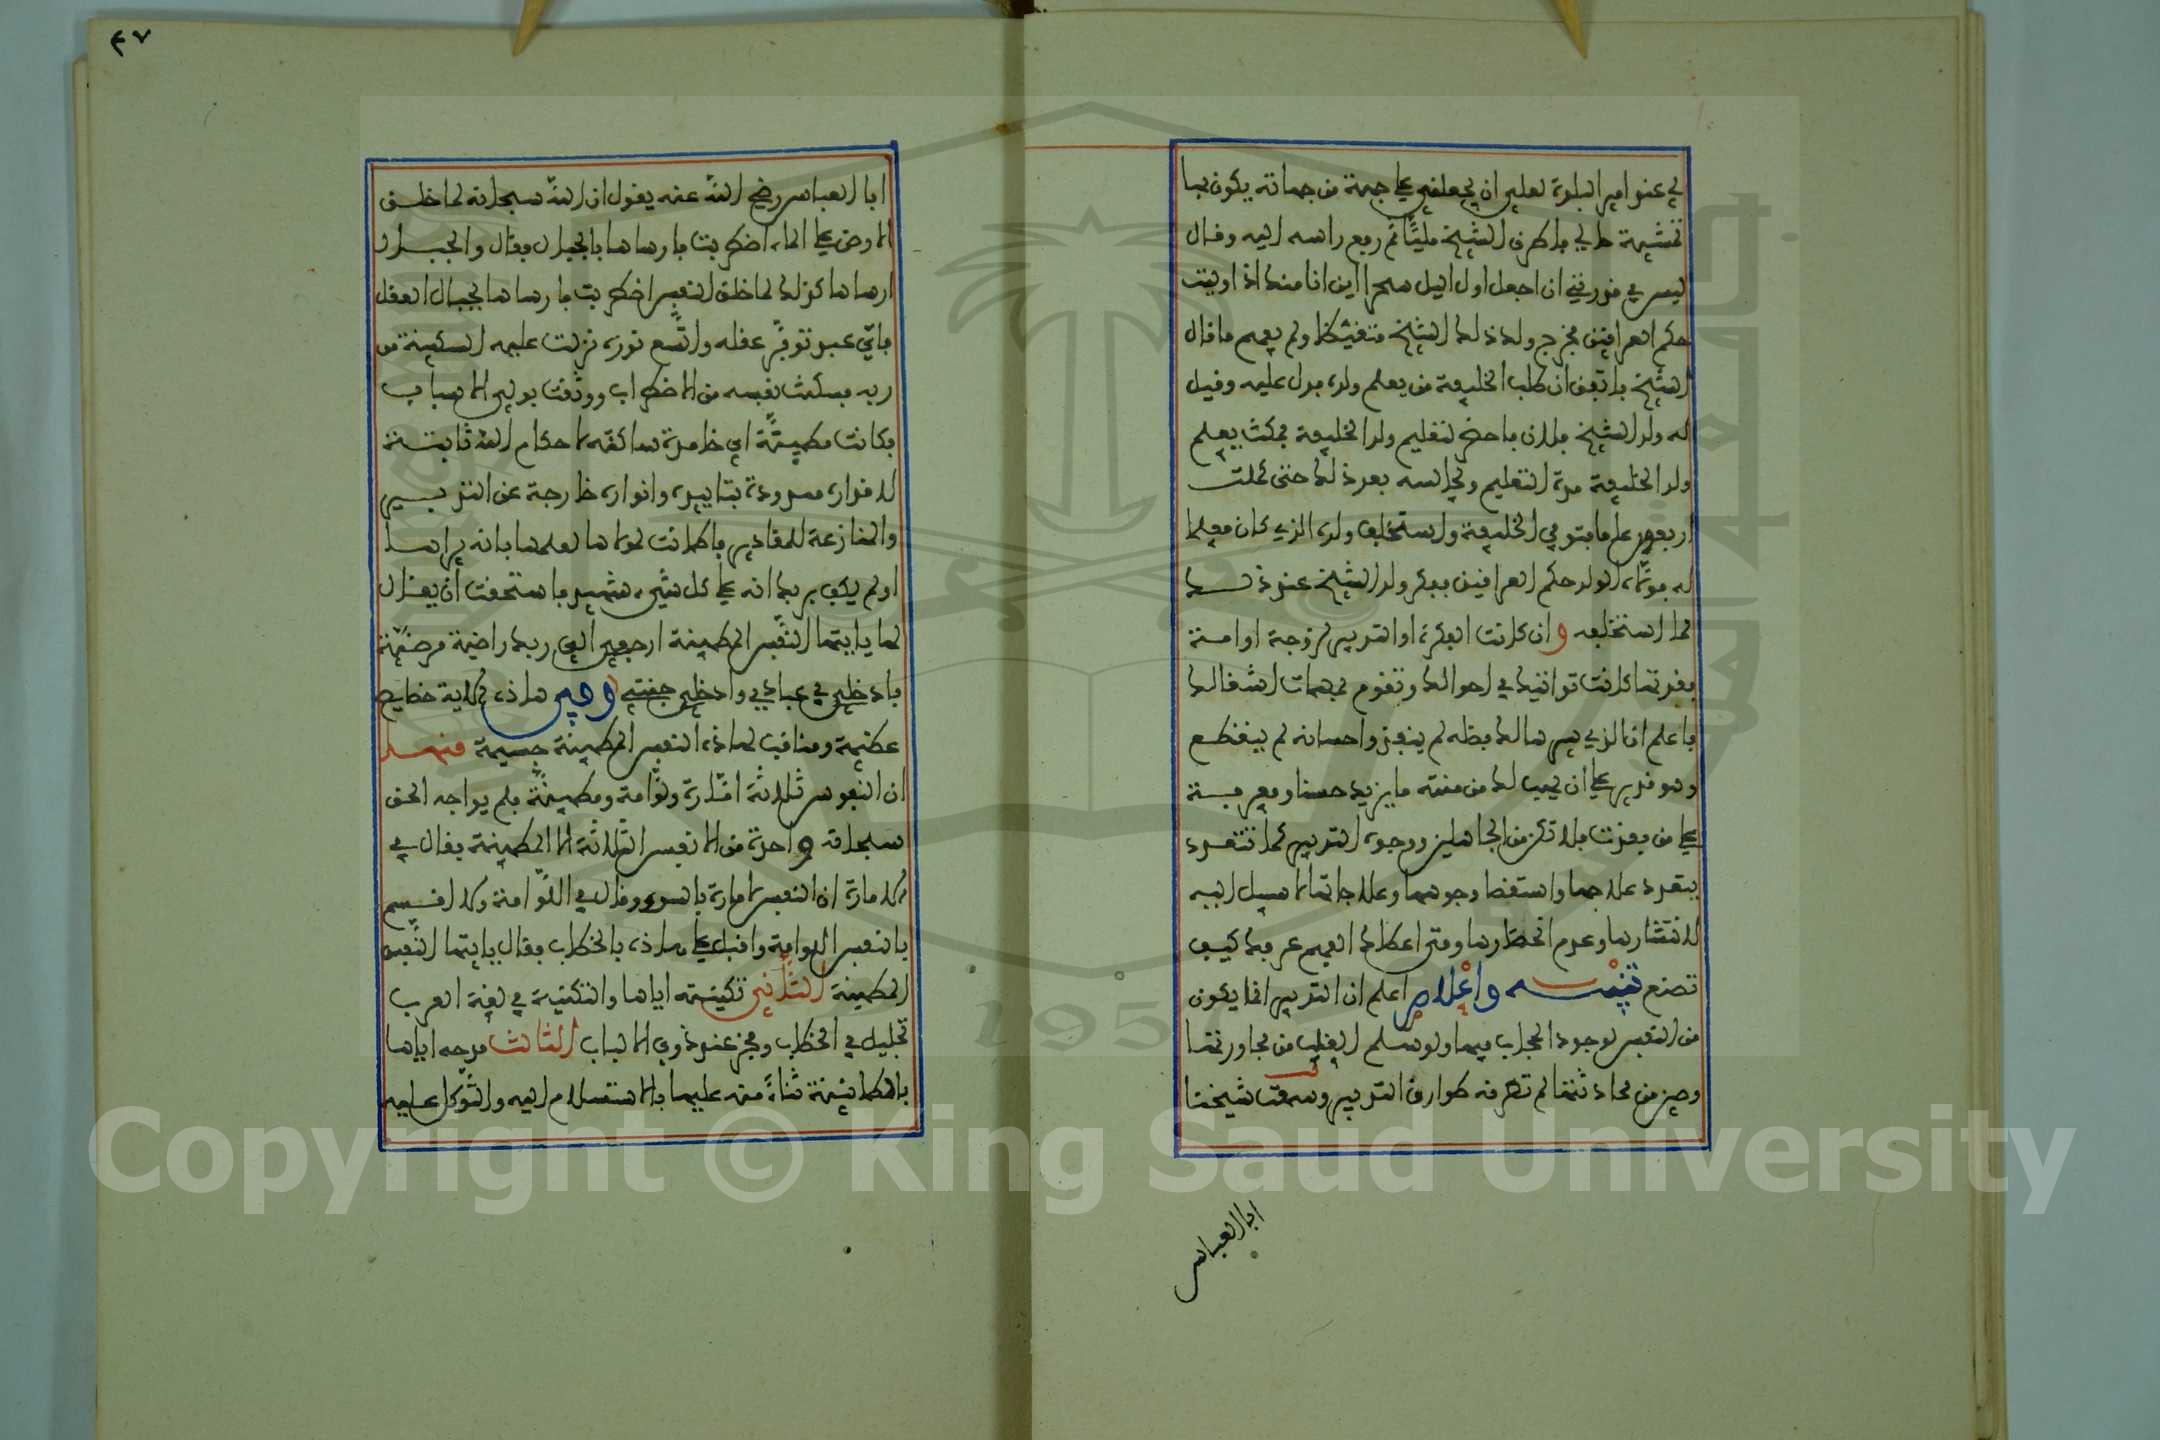 لي عند امير البلدة لعلي ان يجعلني على جهة من جهاته يكون بها
تمشية حالي فاطرق الشيخ مليا ثم رفع راسه اليه وقال
ليس في قدرتي ان اجعل اول اليل سحرا اين انا منك اذا اوتيت
حكم العراقين فخرج ولد ذلك الشيخ متغيظا ولم يفهم ما قال
الشيخ فاتفق ان طلب الخليفة من يعلم ولده فدل عليه وقيل
له ولد الشيخ فلان فاحضر لتعليم ولد الخليفة فمكث يعلم
ولد الخليفة مدة التعليم ويجالسه بعد ذلك حتى كملت
اربعون عاما فتوفي الخليفة واستخلف ولده الذي كان معلما
له فولاه الولد حكم العراقين ففكر ولد الشيخ عند ذلك
لما استخلفه وان كانت الفكرة او التدبير لزوجة او امة
فقدتها كانت توافيك في احوالك وتقوم بمهمات اشغالك
فاعلم ان الذي يسرها لك فضله لم ينفذ واحسانه لم ينقطع
وهو قدير على ان يهب لك من منته ما يزيد حسنا ومعرفة
على من فقدت فلا تكن من الجاهلين ووجوه التدبير لما تتعدد
بتعدد علاجها واستقصا وجوهها وعلاجاتها لا سبيل اليه
لانتشارها وعدم انحظارها ومتى اعطاك الفهم عرفك كيف
تصنع تنبيه واعلام اعلم ان التدبير انما يكون
من النفس لوجود الحجاب فيها ولو سلم القلب من مجاورتها
وصين من محادثتها لم تطرقه طوارق التدبير وسمعت شيخنا
ابا العباس
٤٧
ابا العباس رضي الله عنه يقول ان الله سبحانه لما خلق
الارض على الماء اضطربت فارساها بالجبال فقال والجبال
ارساها كذلك لما خلق النفس اضطربت فارساها بجبال العقل
فاي عبد توفر عقله واتسع نوره نزلت عليه السكينة من
ربه فسكنت نفسه من الاضطراب ووثقت بولي الاسباب
فكانت مطمينة اي خامدة ساكنة لاحكام الله ثابتة
لاقداره ممدودة بتاييده وانواره خارجة عن التدبير
والمنازعة للمقادير فاطمانت لمولاها لعلمها بانه يراها
اولم يكف بربك انه على كل شيء شهيد فاستحقت ان يقال
لها يا ايتها النفس المطمينة ارجعي الى ربك راضية مرضية
فادخلي في عبادي وادخلي جنتي وفي هاذه الاية خصايص
عظيمة ومناقب لهاذه النفس المطمينة جسيمة منها
ان النفوس ثلاثة امارة ولوامة ومطمينة فلم يواجه الحق
سبحانه واحدة من الانفس الثلاثة الا المطمينة فقال في
الامارة ان النفس لامارة بالسوء وقال في اللوامة ولا اقسم
بالنفس اللوامة واقبل على هاذه بالخطاب فقال يا ايتها النفس
المطمينة الثاني تكنيته اياها والتكنية في لغة العرب
تجليل في الخطاب وفخر عند ذوي الالباب الثالث مدحه اياها
بالطمانينة ثناء منه عليها بالاستسلام اليه والتوكل عليه
Copyright © King Saud University
1957